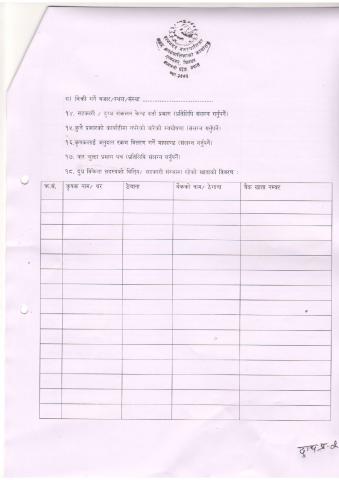 ग) बिक्री गर्ने बजार/स्थल/संस्था ............................
१४. सहकारी / दुग्ध संकलन केन्द्र दर्ता प्रमाण (प्रतिलिपि संलग्न गर्नुपर्ने)
१५. कुनै प्रकारको कारवाहीमा नपरेको स्वघोषणा (संलग्न गर्नुपर्ने)
१६. कृषकलाई अनुदान रकम वितरण गर्ने मापदण्ड (संलग्न गर्नुपर्ने)
१७. कर चुक्ता प्रमाण पत्र (प्रतिलिपि संलग्न गर्नुपर्ने)
१८. दुध बिक्रेता सदस्यको वित्तिय/ सहकारी संस्थामा रहेको खाताको विवरण :
क्र.सं. कृषक नाम/ थर ठेगाना बैंकको नाम/ ठेगाना बैंक खाता नम्बर